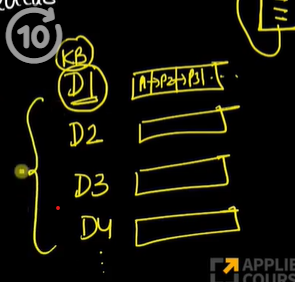 10
KB
D1 P1→P2→P3 . . .
D2
D3
D4
APPLIE
COURS